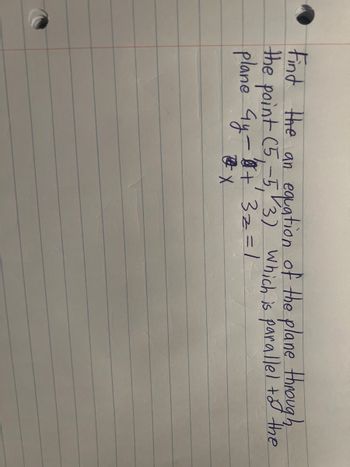 find the an equation of the plane through
the point (5, -5, 3) which is parallel to the
plane 4y - x + 3z = 1